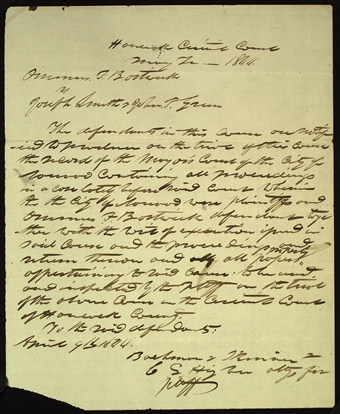 Hancock Circuit Court
May T — 1844
Orsimus F Bostwick
v
Joseph Smith & John P. Green
The defendants in this cause are notif
ied to produce on the trial of this Cause
the record of the Mayors Court of the City of
Nauvoo Containing all proceedings
in a case lately before said Court wherein
the City of Nauvoo were plaintiffs and
Orsimus F Bostwick defendant toge
ther with the writ of execution issued in
said Cause and the proceedings and
return thereon and all papers
appertaining to said cause: to be used
and inspected by the Plff on the trial
of the above Cause in the Circuit Court
of Hancock County.
To the said defendants.
April 9th 1844.
Bachman &
C L Higbee attys for
plaff